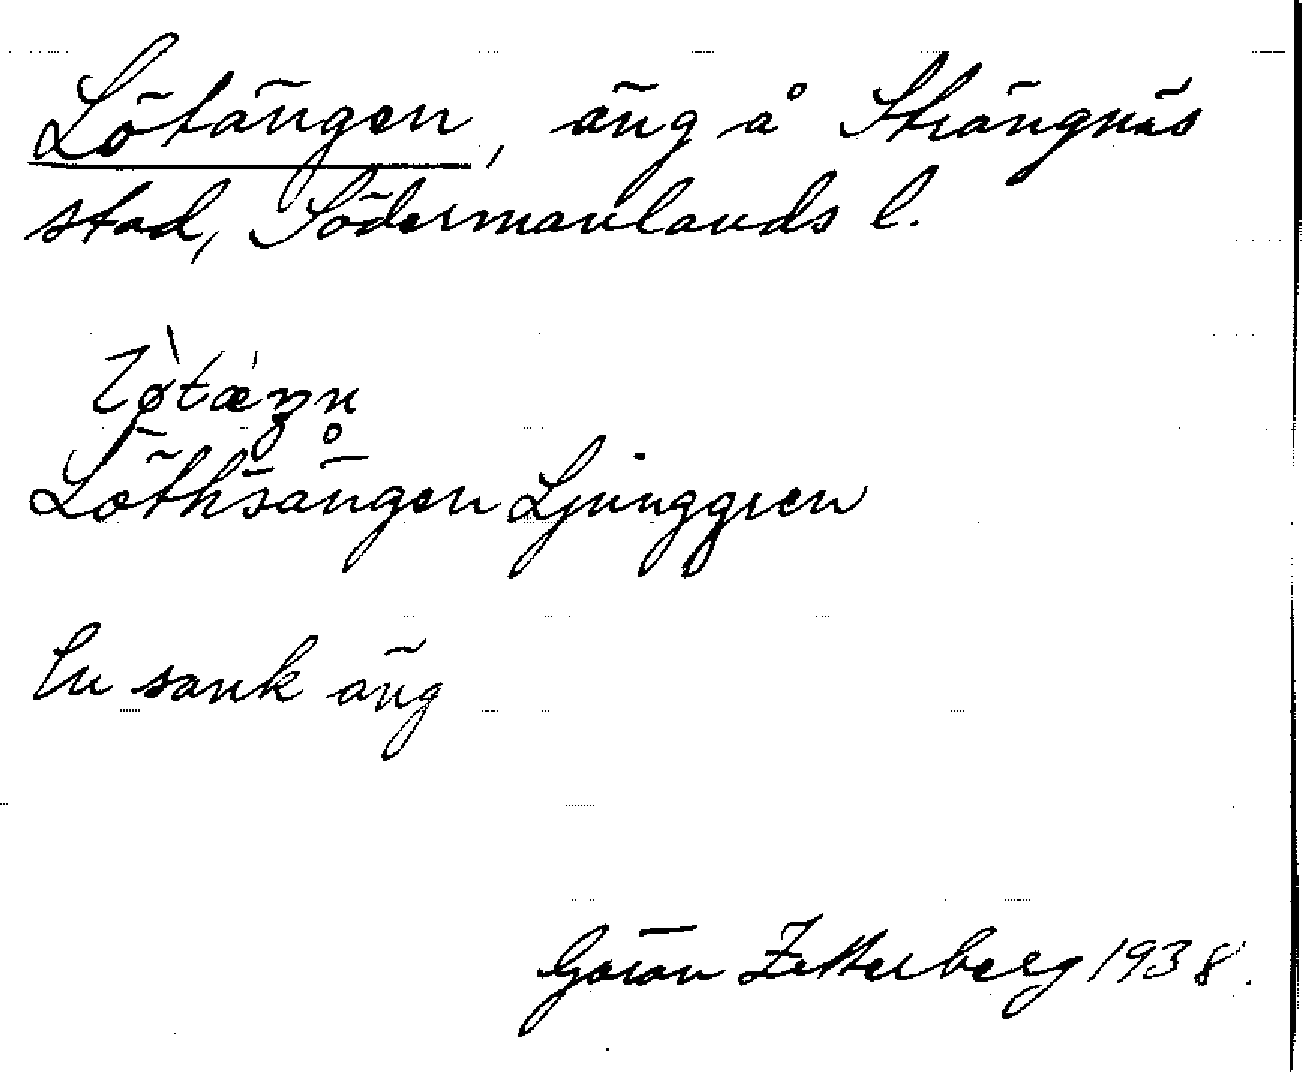 Lötängen, äng å Strängnäs
stad, Södermanlands l.
Löthsängen Ljunggren
En sank äng
Göran Zetterberg 1938.